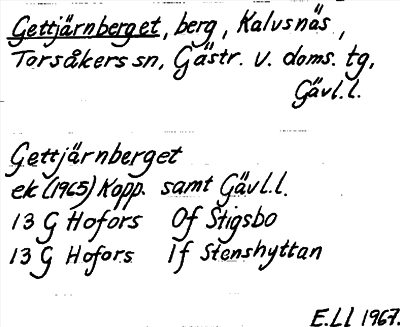 Gettjärnberget, berg, Kalvsnäs,
Torsåkers sn, Gästr. v. doms. tg,
Gävl.l.
Gettjärnberget
ek (1965) Kopp. samt Gävl.l.
13 G Hofors 0f Stigsbo
13 G Hofors 1f Stenshyttan
E.Ll 1967.